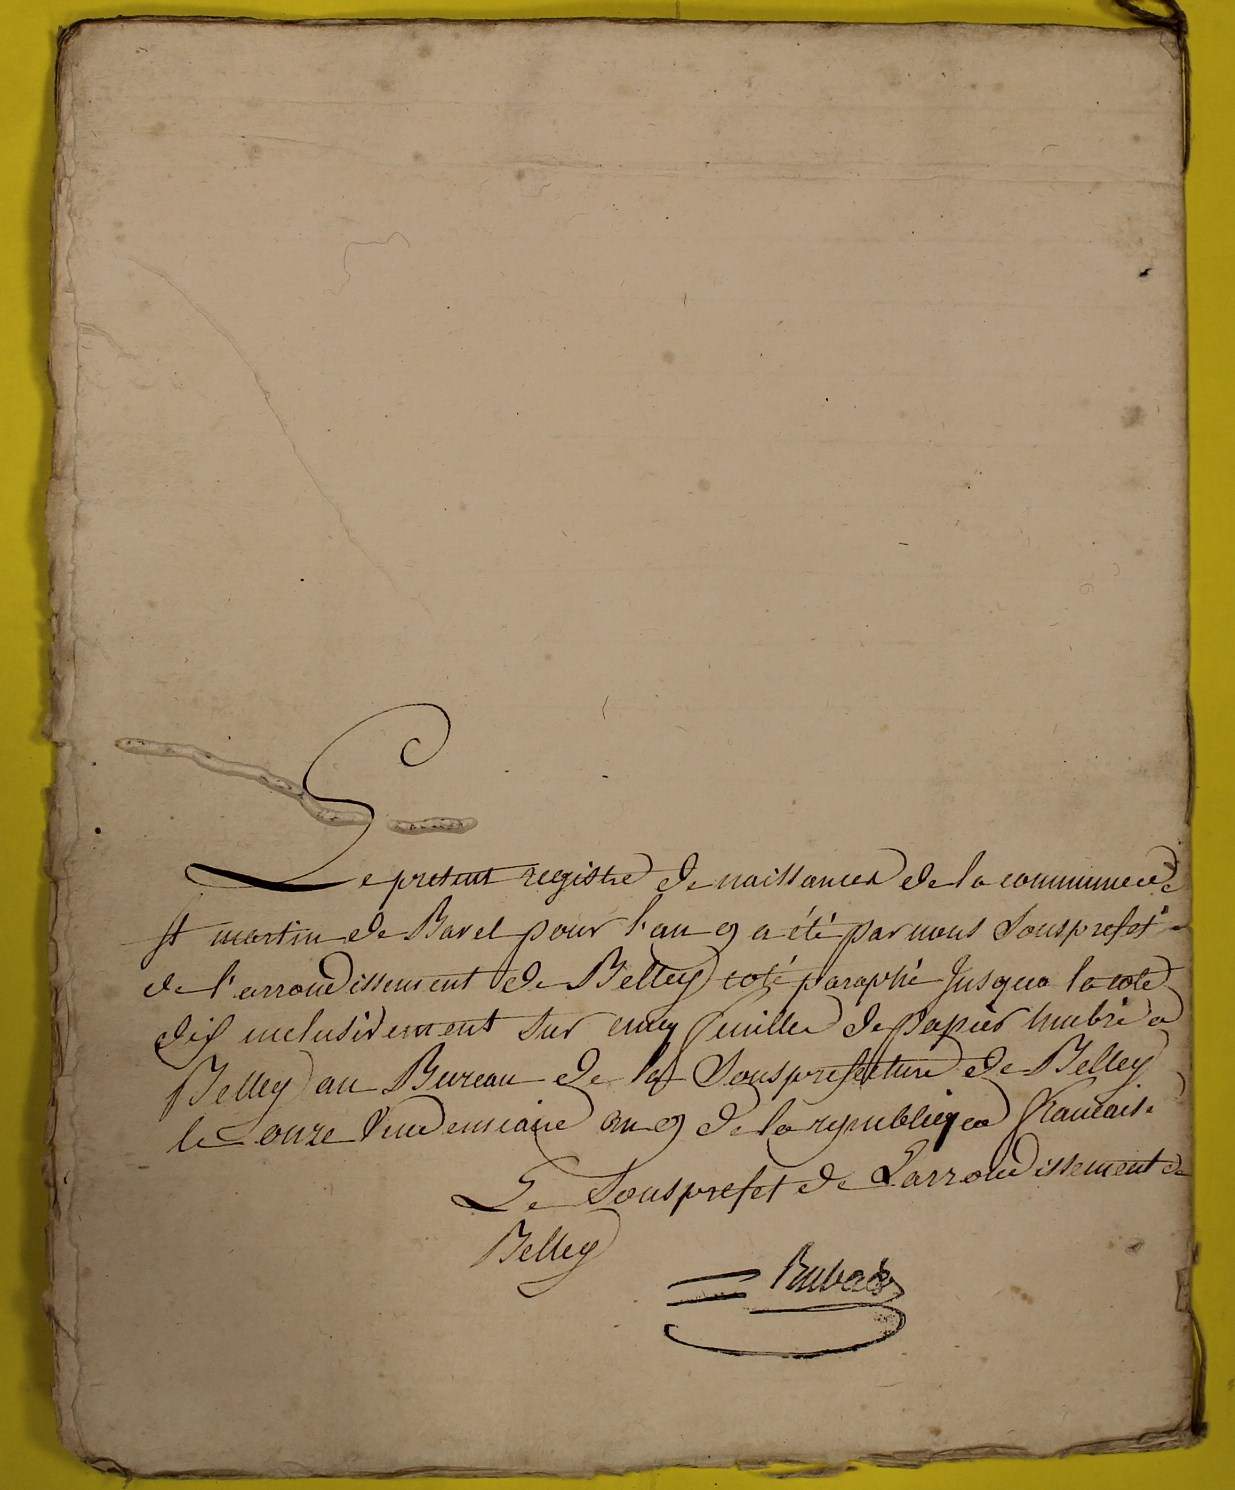 Le present registre de naissances de la commune de
st martin de Bavel pour l'an 9 a été par nous Sousprefet
de l'arrondissement de Belley coté paraphé Jusqua la cote
dix inclusivement sur cinq feuilles de papier timbré a
Belley au Bureau de la Sousprefecture de Belley
le onze Vendemiaire an 9 de la republique francaise
Le Sousprefet de Larrondissement de
Belley